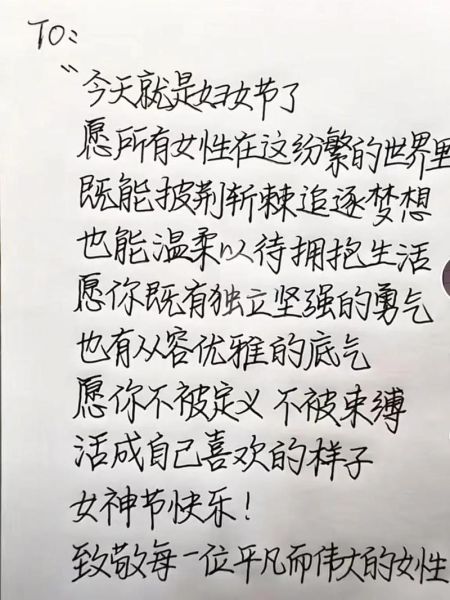 TO:
“今天就是妇女节了
愿所有女性在这纷繁的世界里
既能披荆斩棘追逐梦想
也能温柔以待拥抱生活
愿你既有独立坚强的勇气
也有从容优雅的底气
愿你不被定义 不被束缚
活成自己喜欢的样子
女神节快乐!
致敬每一位平凡而伟大的女性